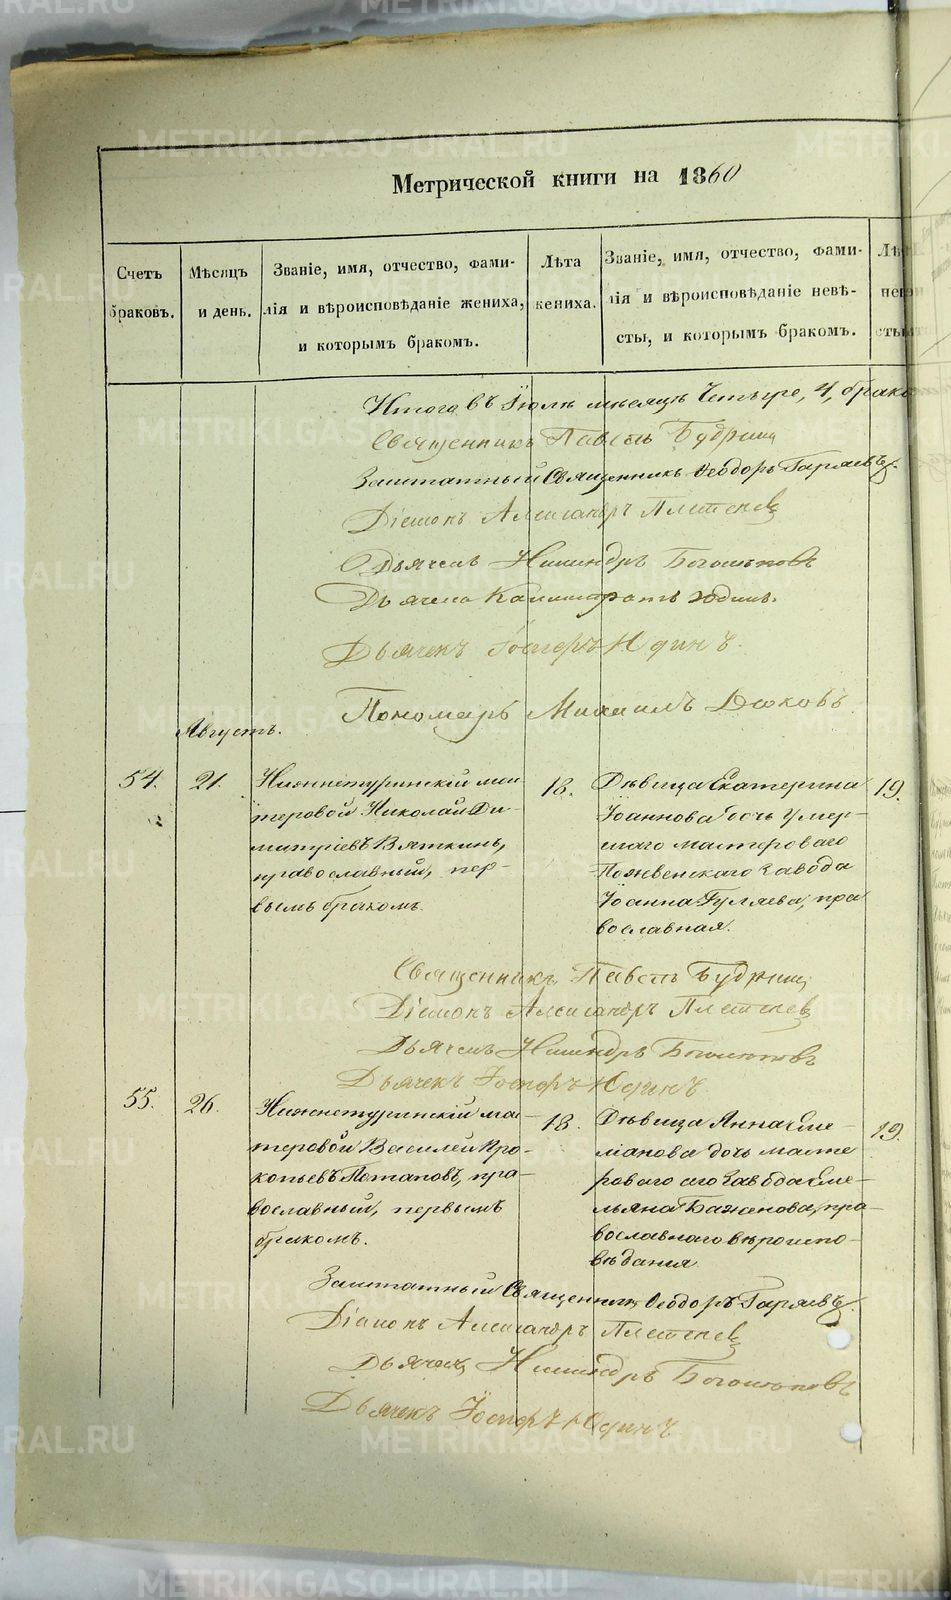 Метрической книги на 1860
Счетъ браковъ.
Мѣсяцъ и день.
Званіе, имя, отчество, фами-
лія и вѣроисповѣданіе жениха,
и которымъ бракомъ.
Лѣта
жениха.
Званіе, имя, отчество, фами-
лія и вѣроисповѣданіе невѣ-
сты, и которымъ бракомъ.
Итого въ Іюлѣ мѣсяцѣ четыре, 4, брака
Священникъ Павелъ Будрин
Заштатный Священникъ Ѳеодоръ Гаряевъ.
Діаконъ Александръ Плетенев
Дьячекъ Никандръ Богомоловъ
Дьячекъ Калистратъ Юдинъ.
Дьячекъ Іосифъ Юдинъ.
Пономарь Михаилъ Дюковъ
Августъ.
54.
21.
Нижнетуринскій мас
теровой Николай Ди-
митріевъ Вяткинъ,
православный, пер-
вымъ бракомъ.
18.
Дѣвица Екатерина
Іоаннова дочь умер-
шаго мастероваго
Пожвенскаго завода
Іоанна Гуляева, пра
вославная.
19.
Священникъ Павелъ Будрин
Діаконъ Александръ Плетенев
Дьячекъ Никандръ Богомоловъ
Дьячекъ Іосифъ Юдинъ
55.
26.
Нижнетуринскій мас
теровой Василей Про-
копьевъ Потаповъ, пра-
вославный, первымъ
бракомъ.
18.
Дѣвица Анна Еме-
ліанова дочь масте
роваго сего завода Еме-
льяна Баженова, пра-
вославнаго вѣроиспо-
вѣданія.
19.
Заштатный Священникъ Ѳеодоръ Гаряевъ.
Діаконъ Александръ Плетенев
Дьячекъ Никандръ Богомоловъ
Дьячекъ Іосифъ Юдинъ
METRIKI.GASO-URAL.RU